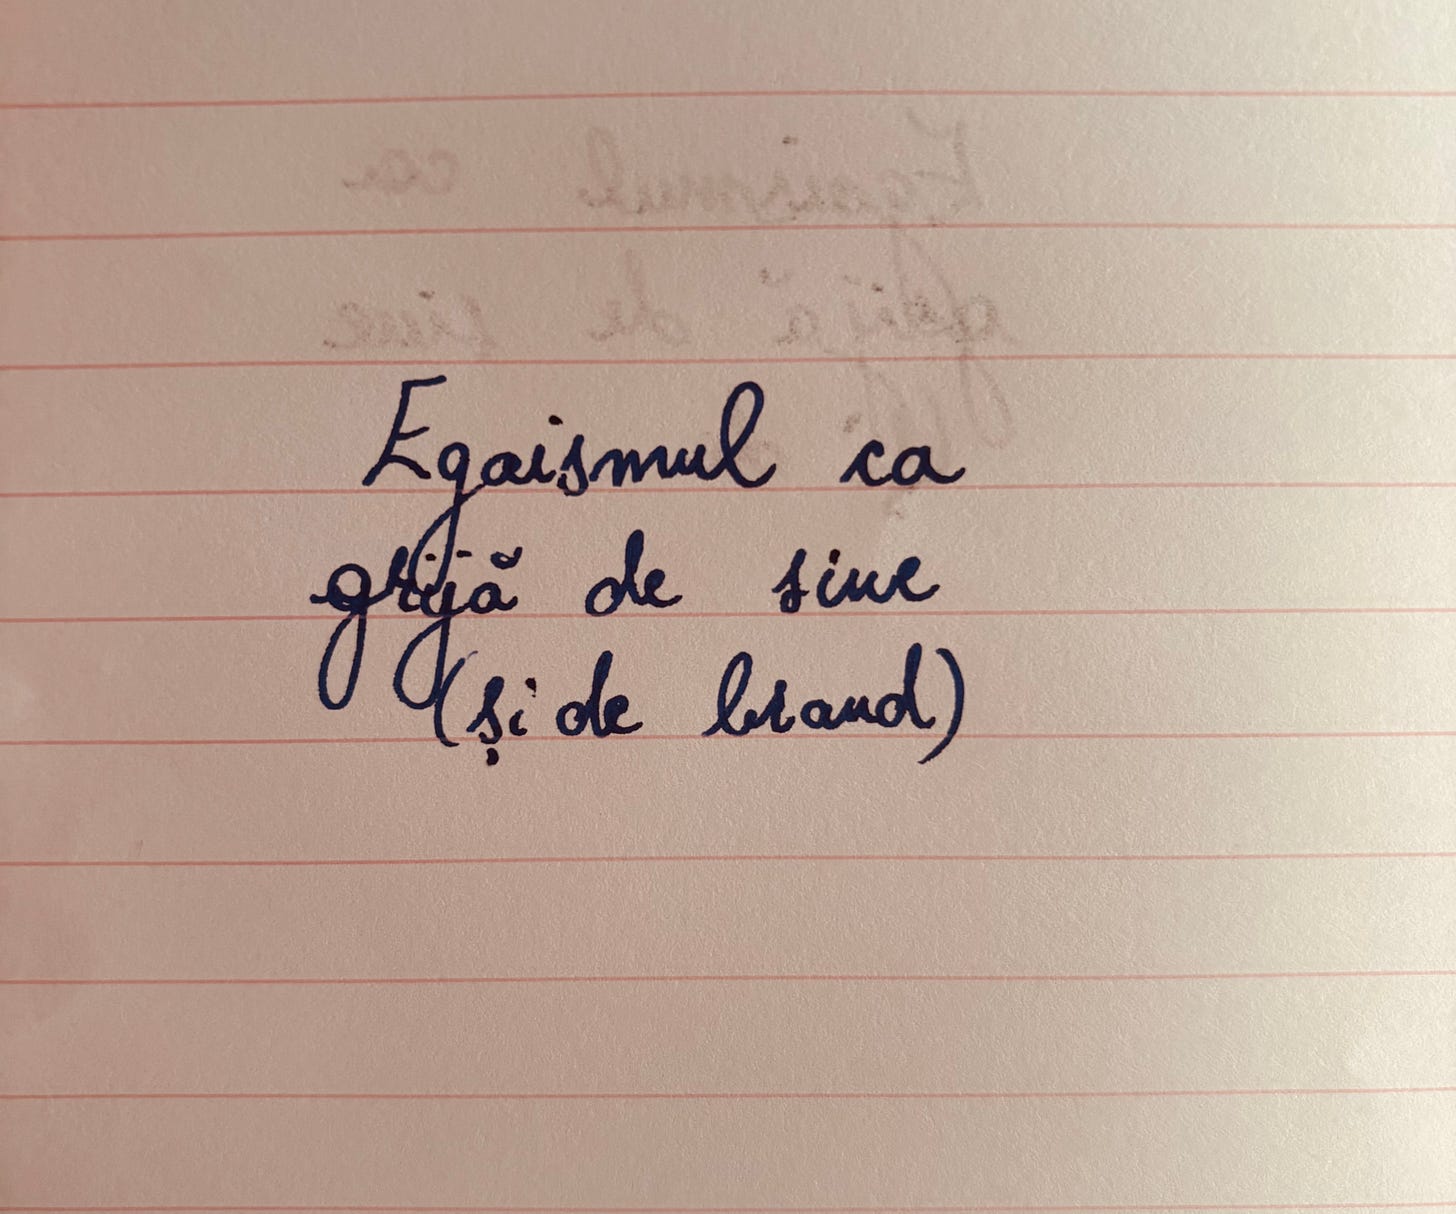 Egoismul ca
grijă de sine
(și de brand)